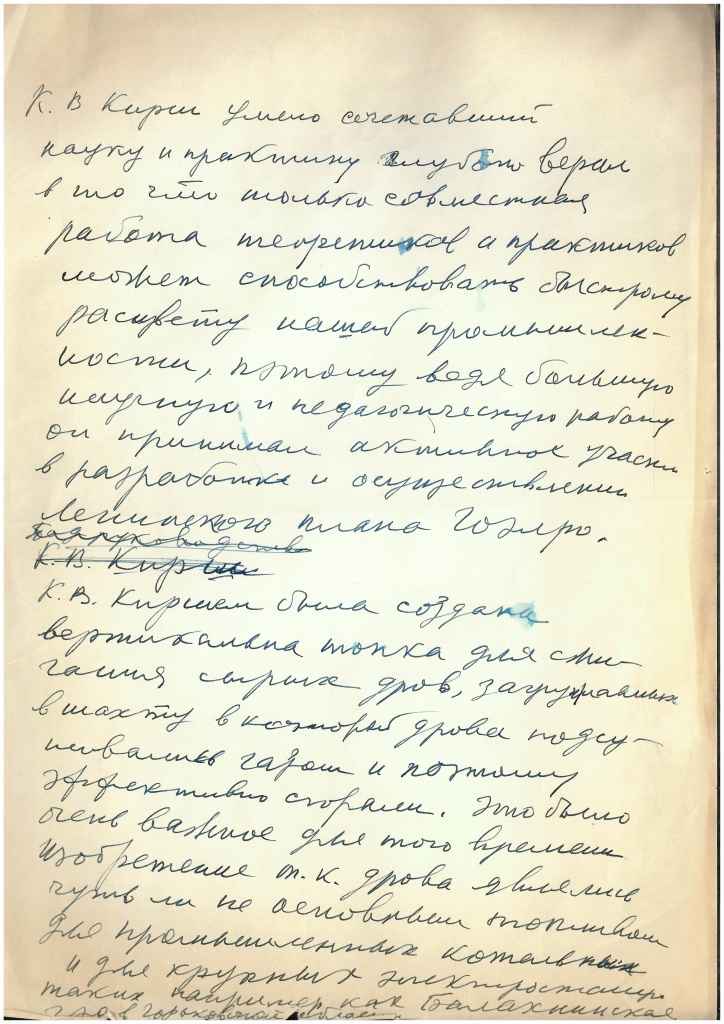 К. В Кирш умело сочетавший
науку и практику глубоко верил
в то что только совместная
работа теоретиков и практиков
может способствовать быстрому
расцвету нашей промышлен-
ности, поэтому ведя большую
научную и педагогическую работу
он принимал активное участие
в разработке и осуществлении
Ленинского плана Гоэлро.
Под руководством
К. В. Кирш
К. В. Киршем была создана
вертикальна топка для сжи-
гания сырых дров, загружавших
в шахту в которой дрова подсу-
шивались газом и поэтому
эффективно сгорали. Это было
очень важное для того времени
изобретение т. к. дрова являлись
чуть ли не основным топливом
для промышленных котельных
и для крупных электростанц.
таких например как Балахнинская
в Горьковской области